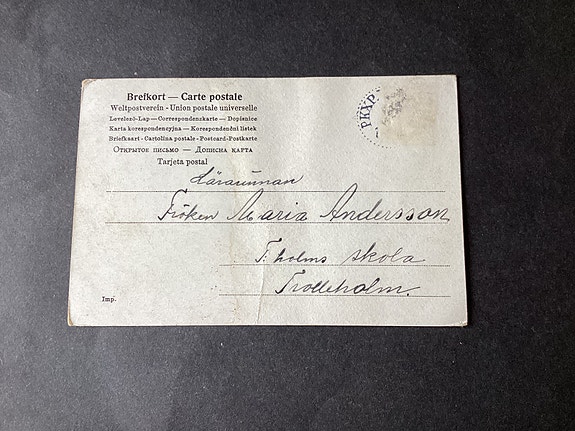 Brefkort — Carte postale
Weltpostverein - Union postale universelle
Levelező-Lap — Correspondenzkarte — Dopisnice
Karta korespondencyjna — Korespondenční listek
Briefkaart - Cartolina postale - Postcard-Postkarte
Открытое письмо — Дописна карта
Tarjeta postal
PKXP
Lärarinnan
Fröken Maria Andersson
T. holms skola
Trolleholm.
Imp.